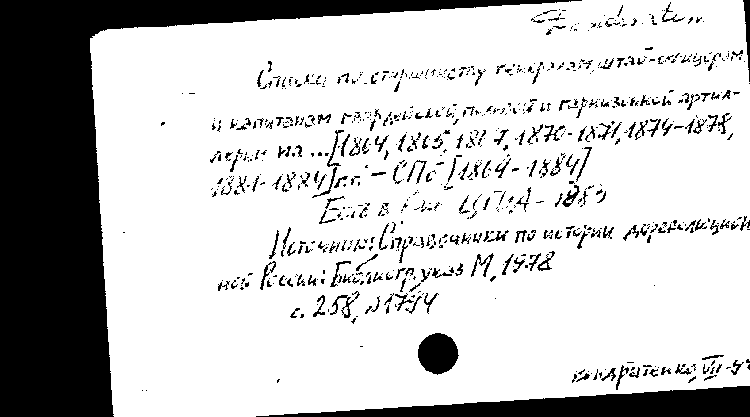 Desiderata
Списки по старшинству генералам, штаб-офицерам
и капитанам гвардейской, полевой и гарнизонной артил-
лерии на ... [1864, 1865, 1867, 1870-1871, 1874-1878,
1881-1884] гг. - СПб [1864-1884]
Есть в ЦГИА - 1883
Источник: Справочники по истории дореволюцион
ной России: Библиогр. указ М, 1978
с. 258, №1794
Кондратенко, VII-